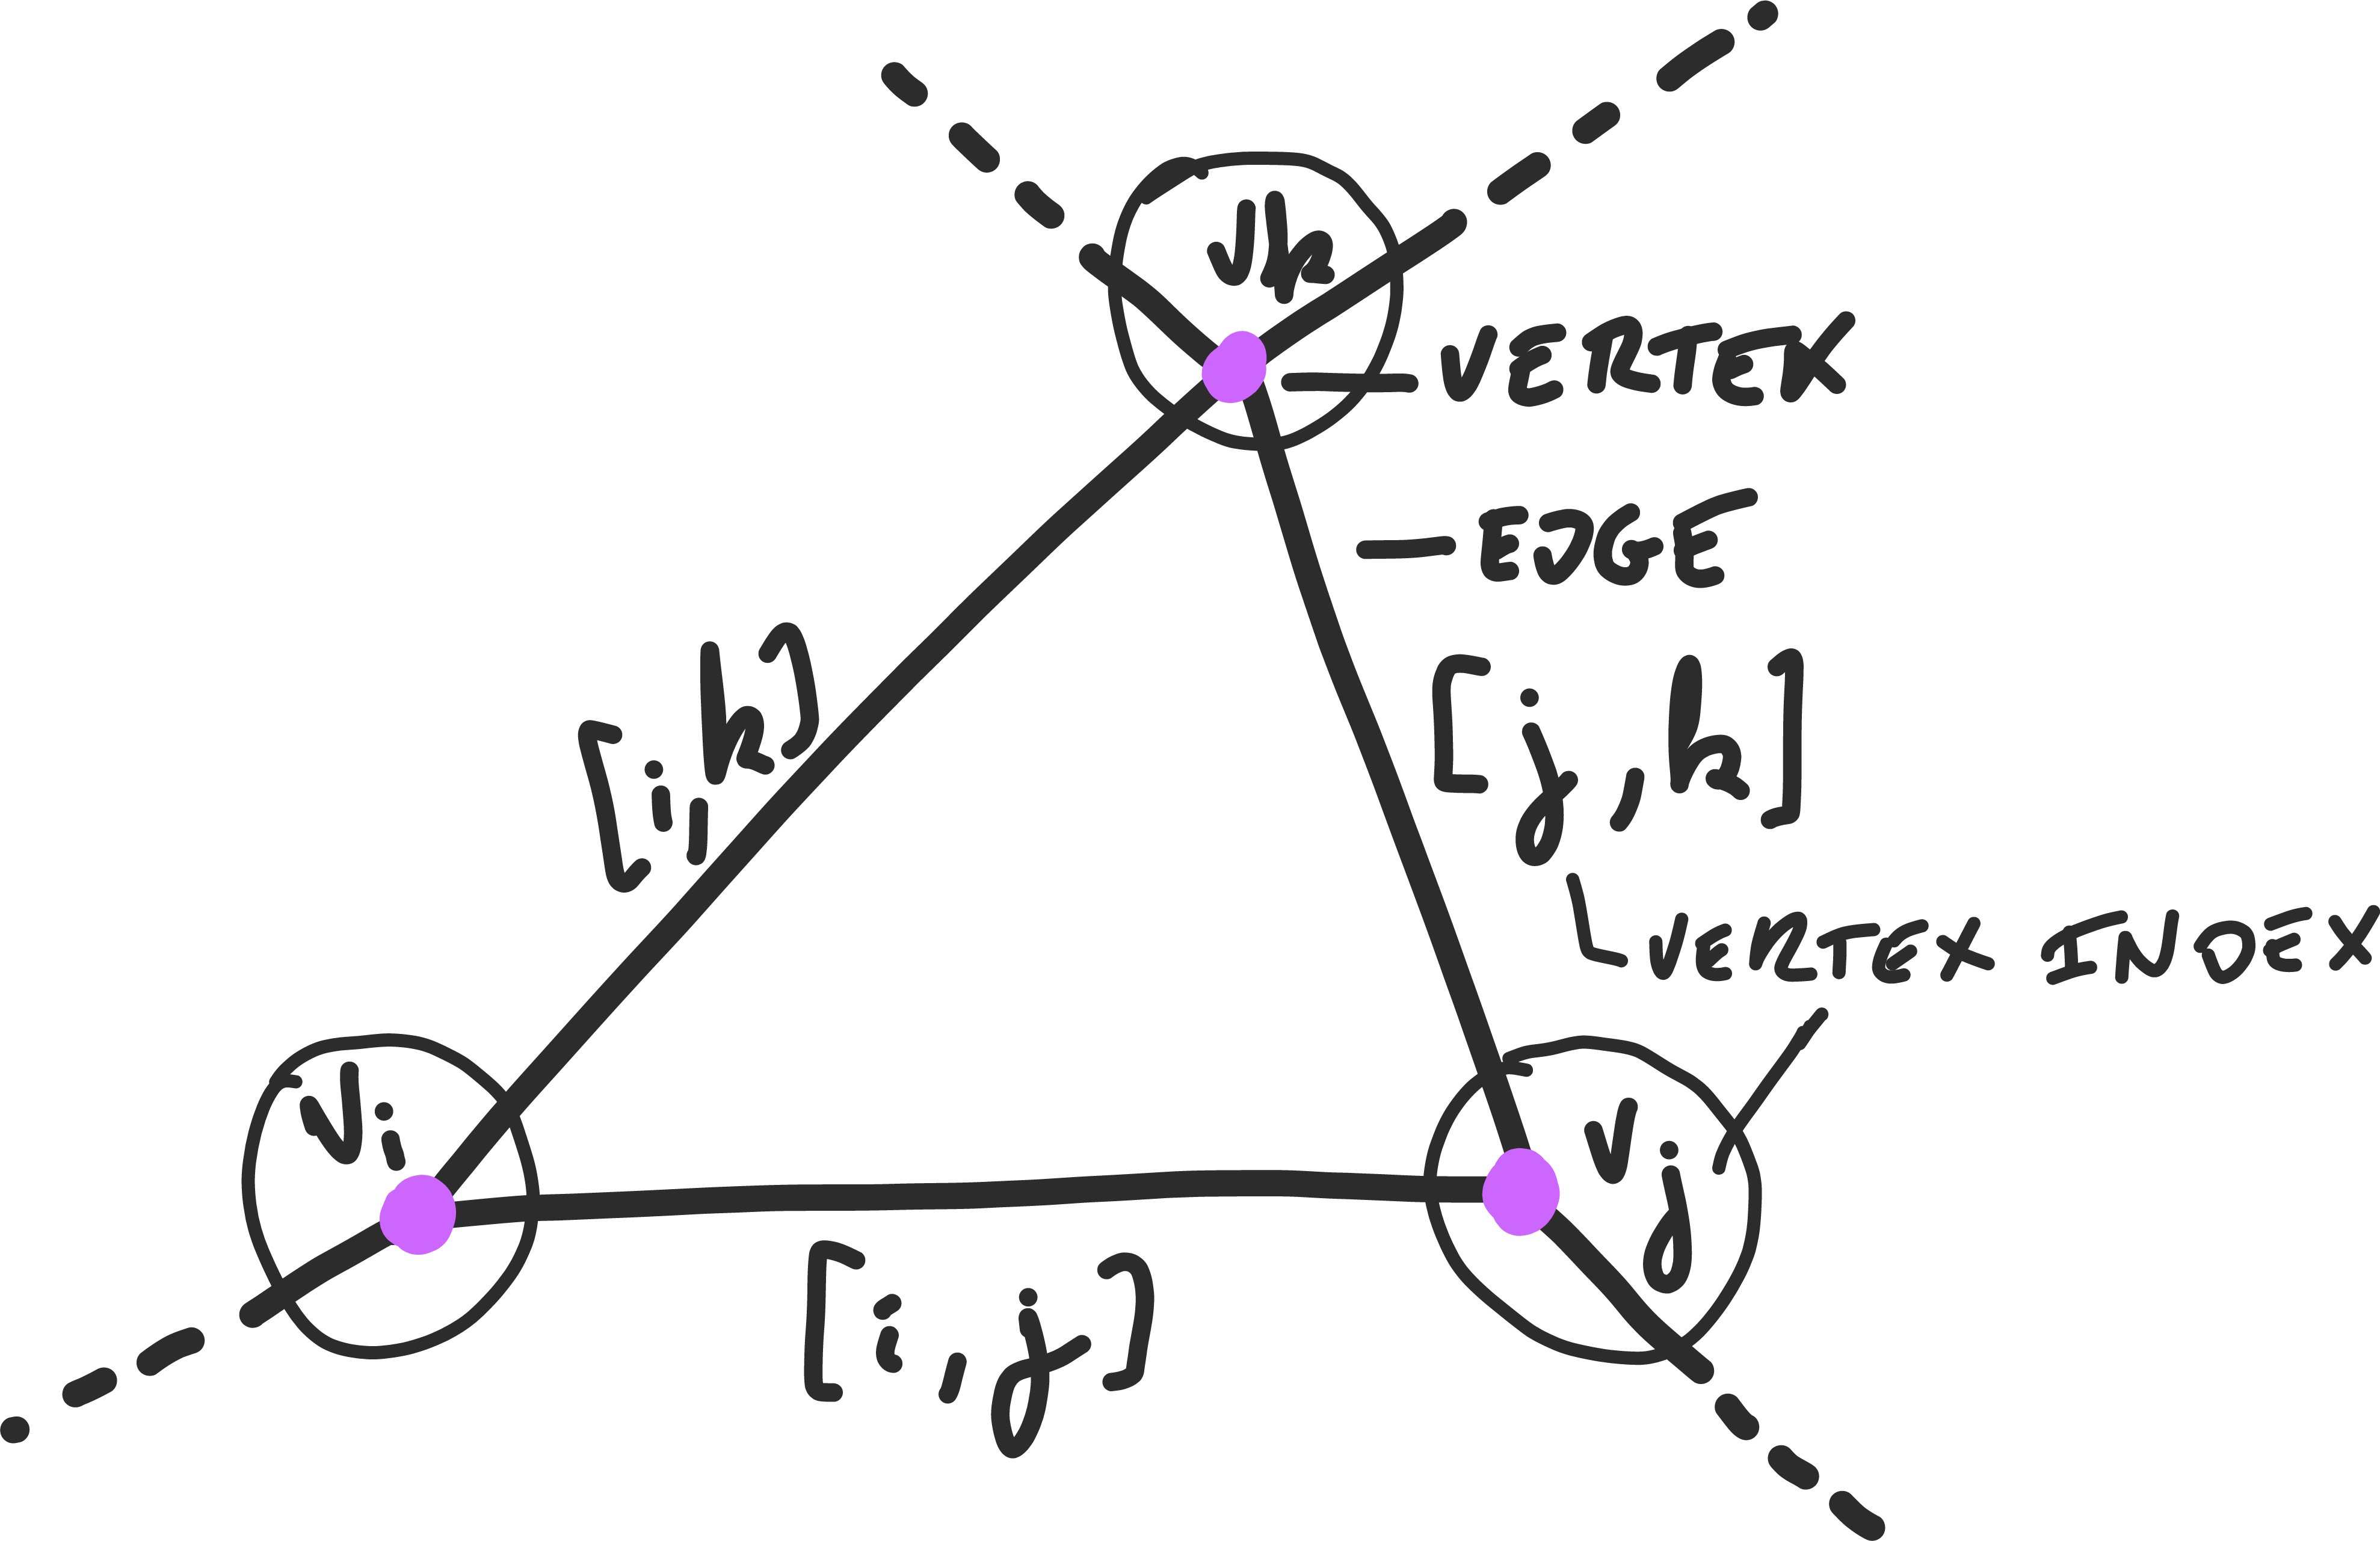 Vk
VERTEX
EDGE
[i,k]
[j,k]
VERTEX INDEX
Vi
Vj
[i,j]